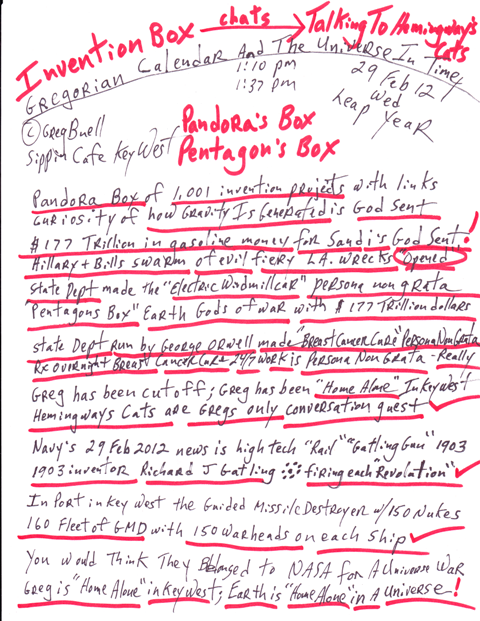 Invention Box chats → Talking To Hemingway's Cats
Gregorian Calendar And The Universe In Time,
1:10 pm
1:37 pm
29 Feb 12
Wed
Leap Year
© Greg Buell
Sippin Cafe Key West
Pandora's Box
Pentagon's Box
Pandora Box of 1,001 invention projects with links
curiosity of how Gravity Is Generated is God Sent
$177 Trillion in gasoline money for Sandi's God Sent!
Hillary + Bills swarm of evil fiery L.A. wrecks "Opened
State Dept made the "Electric Windmillcar" persona non grata
"Pentagons Box" Earth Gods of war with $177 Trillion dollars
State Dept run by George Orwell made "Breast Cancer Cure" Persona Non Grata
Rx Overnight Breast Cancer Cure 24/7 work is Persona Non Grata - Really
Greg has been cut off; Greg has been "Home Alone" In Key West
Hemingways Cats are Gregs only conversation guest
Navy's 29 Feb 2012 news is high tech "Rail" "Gatling Gun" 1903
1903 inventor Richard J Gatling firing each "Revolution"
In Port in Key West the Guided Missile Destroyer w/150 Nukes
160 Fleet of GMD with 150 warheads on each ship
You would Think They Belonged to NASA for A Universe War
Greg is "Home Alone" in Key West; Earth is "Home Alone" in A Universe!